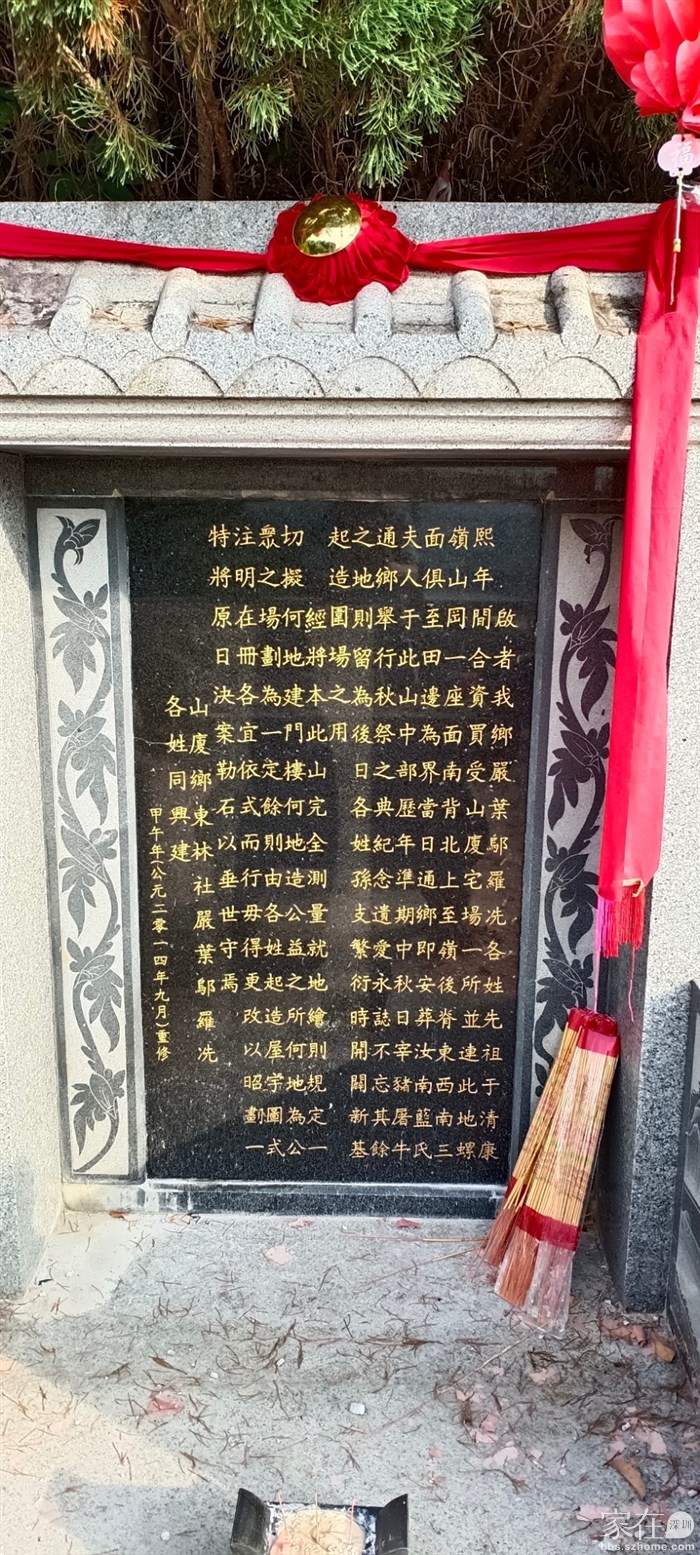 福
啟者我鄉嚴葉鄔羅冼各姓先祖于清康
熙年間合資買受山廈宅場一所並連此地螺
嶺山岡一座面南背北上至嶺後脊東西南三
面俱至田邊為界當日通鄉即安葬汝南藍氏
夫人于此山中部歷年準期中秋日宰豬屠牛
通鄉舉行秋祭之典紀念遺愛永誌不忘其餘
之地則留為後日各姓孫支繁衍時開闢新基
起造圍場之用
經將本此山完全測量就地繪則規定一
切擬何地建門樓何地造公益之所何地為公
眾之場劃為一定餘則由各姓起造屋宇圖式
注明在冊各宜依式而行毋得更改以昭劃一
特將原日決案勒石以垂世守焉
山廈鄉東林社嚴葉鄔羅冼
各姓同興建
甲午年(公元二零一四年九月)重修
家在深圳
bbs.szhome.com